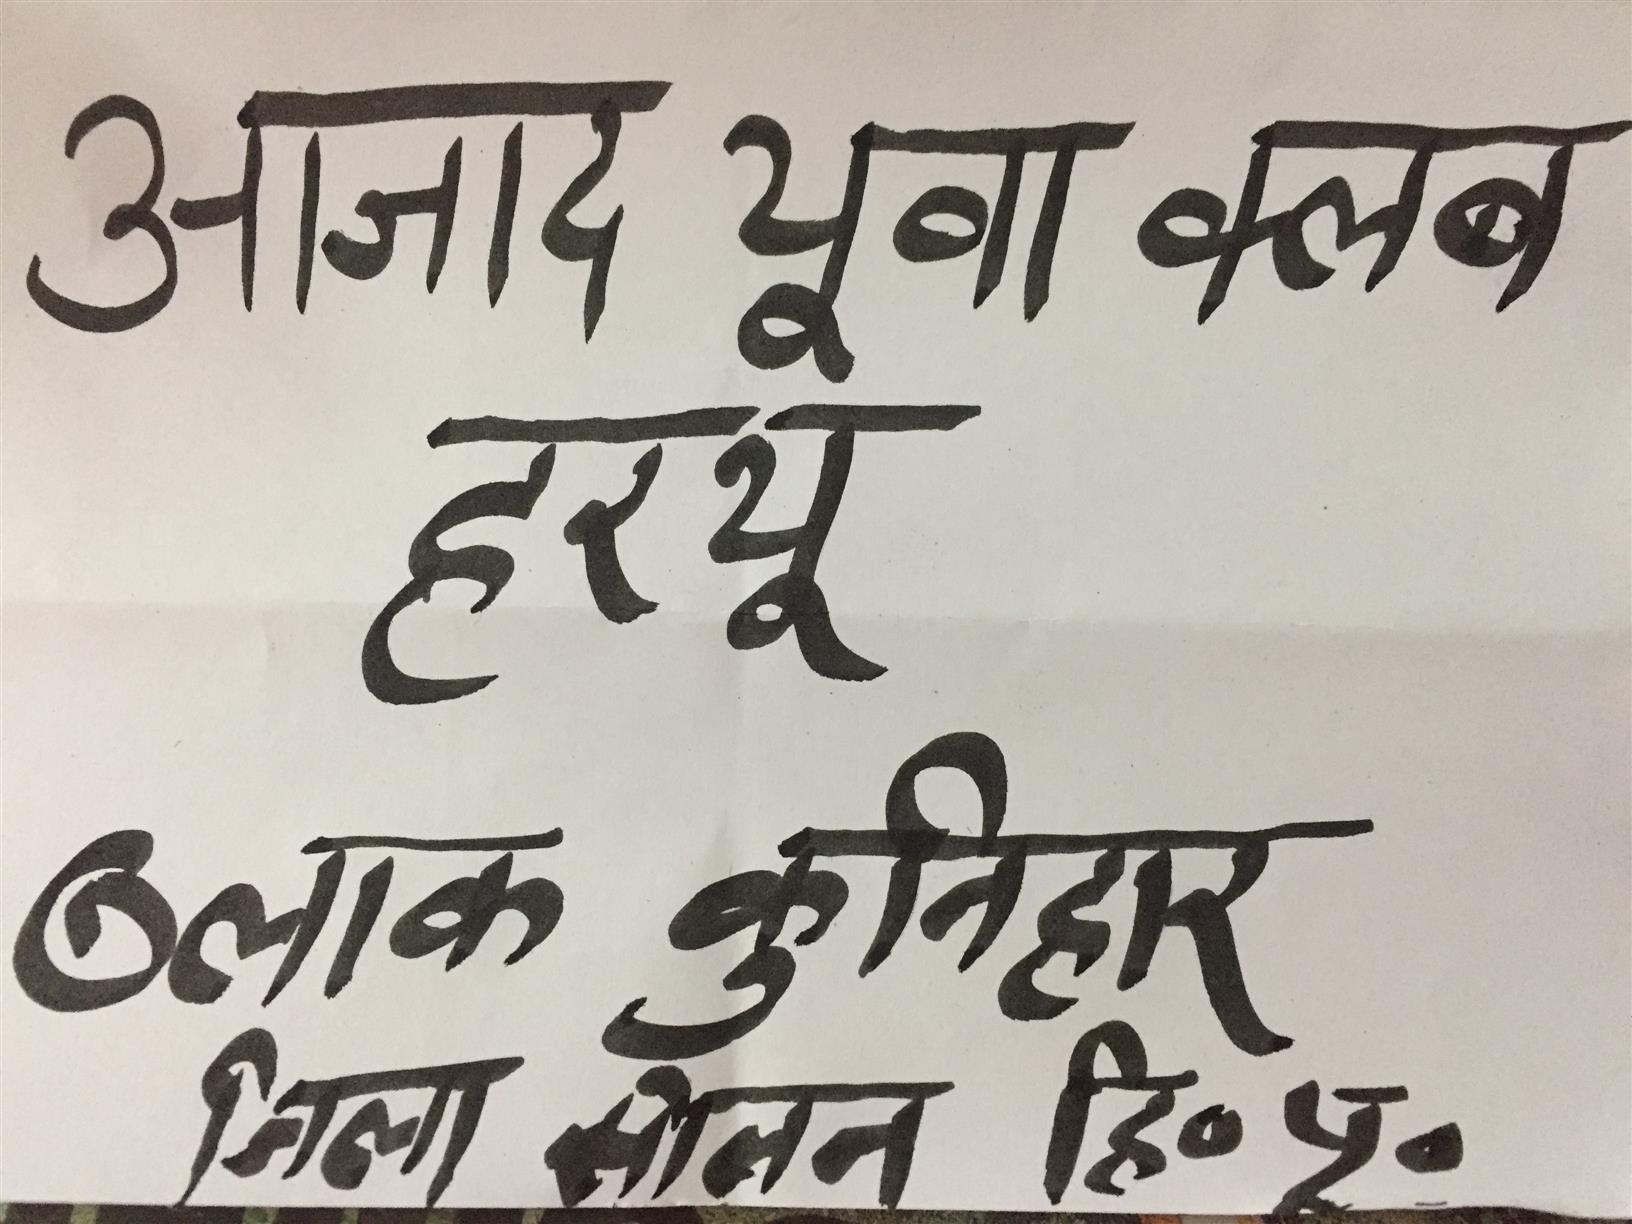 आजाद यूवा क्लब
हरयू
ब्लाक कुनिहार
जिला सोलन हि॰ प्र॰